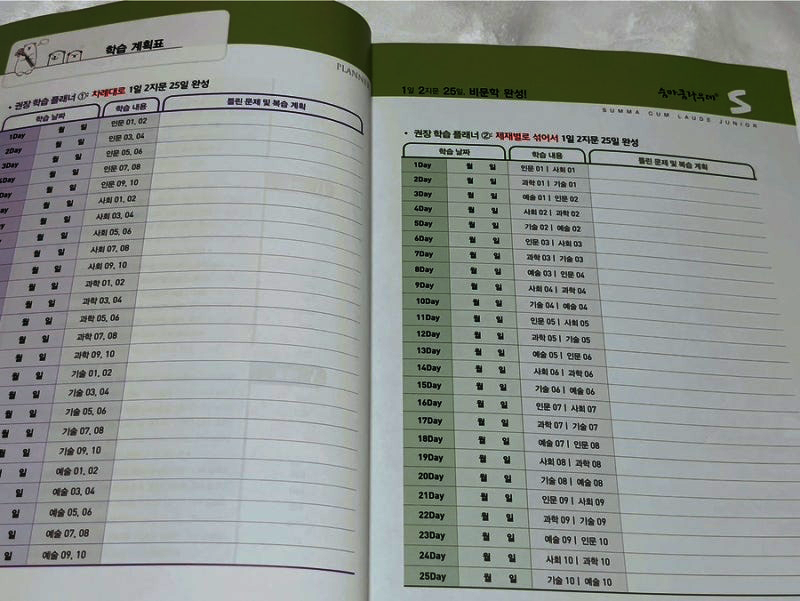 학습 계획표
PLANNER
• 권장 학습 플래너 ①: 차례대로 1일 2지문 25일 완성
학습 날짜 학습 내용 틀린 문제 및 복습 계획
1Day 월 일 인문 01, 02
2Day 월 일 인문 03, 04
3Day 월 일 인문 05, 06
4Day 월 일 인문 07, 08
Day 월 일 인문 09, 10
Day 월 일 사회 01, 02
Day 월 일 사회 03, 04
월 일 사회 05, 06
월 일 사회 07, 08
월 일 사회 09, 10
월 일 과학 01, 02
월 일 과학 03, 04
월 일 과학 05, 06
월 일 과학 07, 08
월 일 과학 09, 10
월 일 기술 01, 02
월 일 기술 03, 04
월 일 기술 05, 06
월 일 기술 07, 08
월 일 기술 09, 10
일 예술 01, 02
일 예술 03, 04
일 예술 05, 06
일 예술 07, 08
일 예술 09, 10
1일 2지문 25일, 비문학 완성!
숨마쿰라우데®
S
SUMMA CUM LAUDE JUNIOR
• 권장 학습 플래너 ②: 제재별로 섞어서 1일 2지문 25일 완성
학습 날짜 학습 내용 틀린 문제 및 복습 계획
1Day 월 일 인문 01 | 사회 01
2Day 월 일 과학 01 | 기술 01
3Day 월 일 예술 01 | 인문 02
4Day 월 일 사회 02 | 과학 02
5Day 월 일 기술 02 | 예술 02
6Day 월 일 인문 03 | 사회 03
7Day 월 일 과학 03 | 기술 03
8Day 월 일 예술 03 | 인문 04
9Day 월 일 사회 04 | 과학 04
10Day 월 일 기술 04 | 예술 04
11Day 월 일 인문 05 | 사회 05
12Day 월 일 과학 05 | 기술 05
13Day 월 일 예술 05 | 인문 06
14Day 월 일 사회 06 | 과학 06
15Day 월 일 기술 06 | 예술 06
16Day 월 일 인문 07 | 사회 07
17Day 월 일 과학 07 | 기술 07
18Day 월 일 예술 07 | 인문 08
19Day 월 일 사회 08 | 과학 08
20Day 월 일 기술 08 | 예술 08
21Day 월 일 인문 09 | 사회 09
22Day 월 일 과학 09 | 기술 09
23Day 월 일 예술 09 | 인문 10
24Day 월 일 사회 10 | 과학 10
25Day 월 일 기술 10 | 예술 10